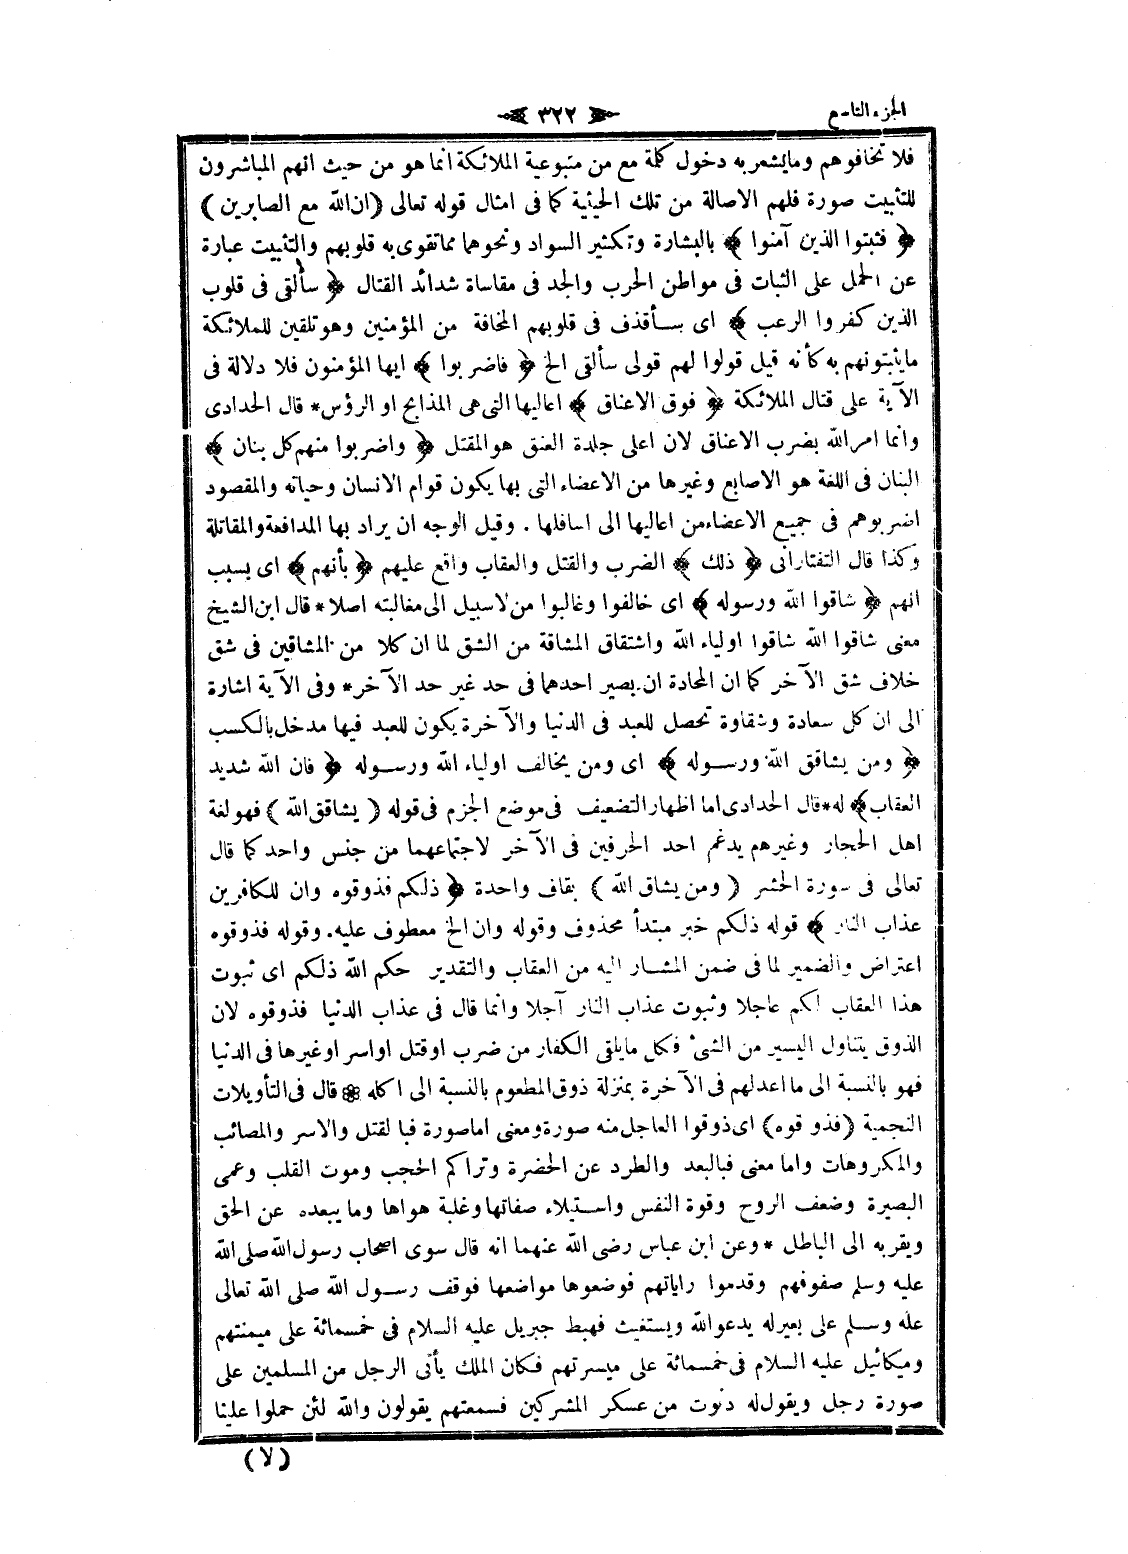 الجزء التاسع
٣٢٢
فلا تخافوهم وما يشعر به دخول كلمة مع من متبوعية الملائكة انما هو من حيث انهم المباشرون
للتثبيت صورة فلهم الاصالة من تلك الحيثية كما فى امثال قوله تعالى (ان الله مع الصابرين)
﴿ فثبتوا الذين آمنوا ﴾ بالبشارة وتكثير السواد ونحوهما مما تقوى به قلوبهم والتثبيت عبارة
عن الحمل على الثبات فى مواطن الحرب والجد فى مقاساة شدائد القتال ﴿ سألقى فى قلوب
الذين كفروا الرعب ﴾ اى سأقذف فى قلوبهم المخافة من المؤمنين وهو تلقين للملائكة
ما يثبتونهم به كأنه قيل قولوا لهم قولى سألقى الخ ﴿ فاضربوا ﴾ ايها المؤمنون فلا دلالة فى
الآية على قتال الملائكة ﴿ فوق الاعناق ﴾ اعاليها التى هى المذابح او الرؤس * قال الحدادى
وانما امر الله بضرب الاعناق لان اعلى جلدة العنق هو المقتل ﴿ واضربوا منهم كل بنان ﴾
البنان فى اللغة هو الاصابع وغيرها من الاعضاء التى بها يكون قوام الانسان وحياته والمقصود
اضربوهم فى جميع الاعضاء من اعاليها الى اسافلها . وقيل الوجه ان يراد بها المدافعة والمقاتلة
وكذا قال التفتازانى ﴿ ذلك ﴾ الضرب والقتل والعقاب واقع عليهم ﴿ بأنهم ﴾ اى بسبب
انهم ﴿ شاقوا الله ورسوله ﴾ اى خالفوا وغالبوا من لاسبيل الى مغالبته اصلا * قال ابن الشيخ
معنى شاقوا الله شاقوا اولياء الله واشتقاق المشاقة من الشق لما ان كلا من المشاقين فى شق
خلاف شق الآخر كما ان المحادة ان يصير احدهما فى حد غير حد الآخر * وفى الآية اشارة
الى ان كل سعادة وشقاوة تحصل للعبد فى الدنيا والآخرة يكون للعبد فيها مدخل بالكسب
﴿ ومن يشاقق الله ورسوله ﴾ اى ومن يخالف اولياء الله ورسوله ﴿ فان الله شديد
العقاب ﴾ له * قال الحدادى اما اظهار التضعيف فى موضع الجزم فى قوله (يشاقق الله) فهو لغة
اهل الحجاز وغيرهم يدغم احد الحرفين فى الآخر لاجتماعهما من جنس واحد كما قال
تعالى فى سورة الحشر (ومن يشاق الله) بقاف واحدة ﴿ ذلكم فذوقوه وان للكافرين
عذاب النار ﴾ قوله ذلكم خبر مبتدأ محذوف وقوله وان الخ معطوف عليه. وقوله فذوقوه
اعتراض والضمير لما فى ضمن المشار اليه من العقاب والتقدير حكم الله ذلكم اى ثبوت
هذا العقاب لكم عاجلا وثبوت عذاب النار آجلا وانما قال فى عذاب الدنيا فذوقوه لان
الذوق يتناول اليسير من الشىء فكل ما يلقى الكفار من ضرب او قتل او اسر او غيرها فى الدنيا
فهو بالنسبة الى ما اعدلهم فى الآخرة بمنزلة ذوق المطعوم بالنسبة الى اكله ❀ قال فى التأويلات
النجمية (فذوقوه) اى ذوقوا العاجل منه صورة ومعنى اما صورة فبالقتل والاسر والمصائب
والمكروهات واما معنى فبالبعد والطرد عن الحضرة وتراكم الحجب وموت القلب وعمى
البصيرة وضعف الروح وقوة النفس واستيلاء صفاتها وغلبة هواها وما يبعده عن الحق
ويقربه الى الباطل * وعن ابن عباس رضى الله عنهما انه قال سوى اصحاب رسول الله صلى الله
عليه وسلم صفوفهم وقدموا راياتهم فوضعوها مواضعها فوقف رسول الله صلى الله تعالى
عله وسلم على بعير له يدعو الله ويستغيث فهبط جبريل عليه السلام فى خمسمائة على ميمنتهم
وميكائيل عليه السلام فى خمسمائة على ميسرتهم فكان الملك يأتى الرجل من المسلمين على
صورة رجل ويقول له دنوت من عسكر المشركين فسمعتهم يقولون والله لئن حملوا علينا
(لا)